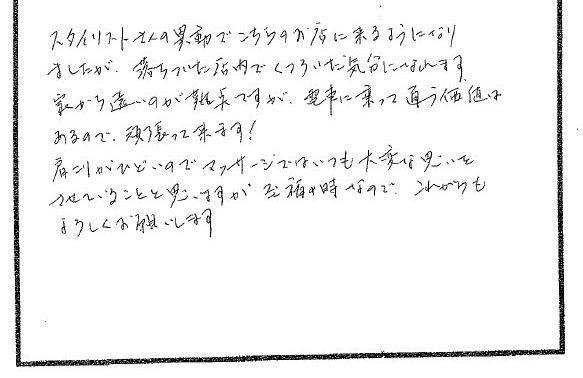 スタイリストさんの異動でこちらのお店に来るようになり
ましたが、落ちついた店内でくつろいだ気分になれます
家から遠いのが難点ですが、電車に乗って通う価値は
あるので、頑張って来ます!
肩こりがひどいのでマッサージではいつも大変な思いを
させていることと思いますが至福の時なので、これからも
よろしくお願いします